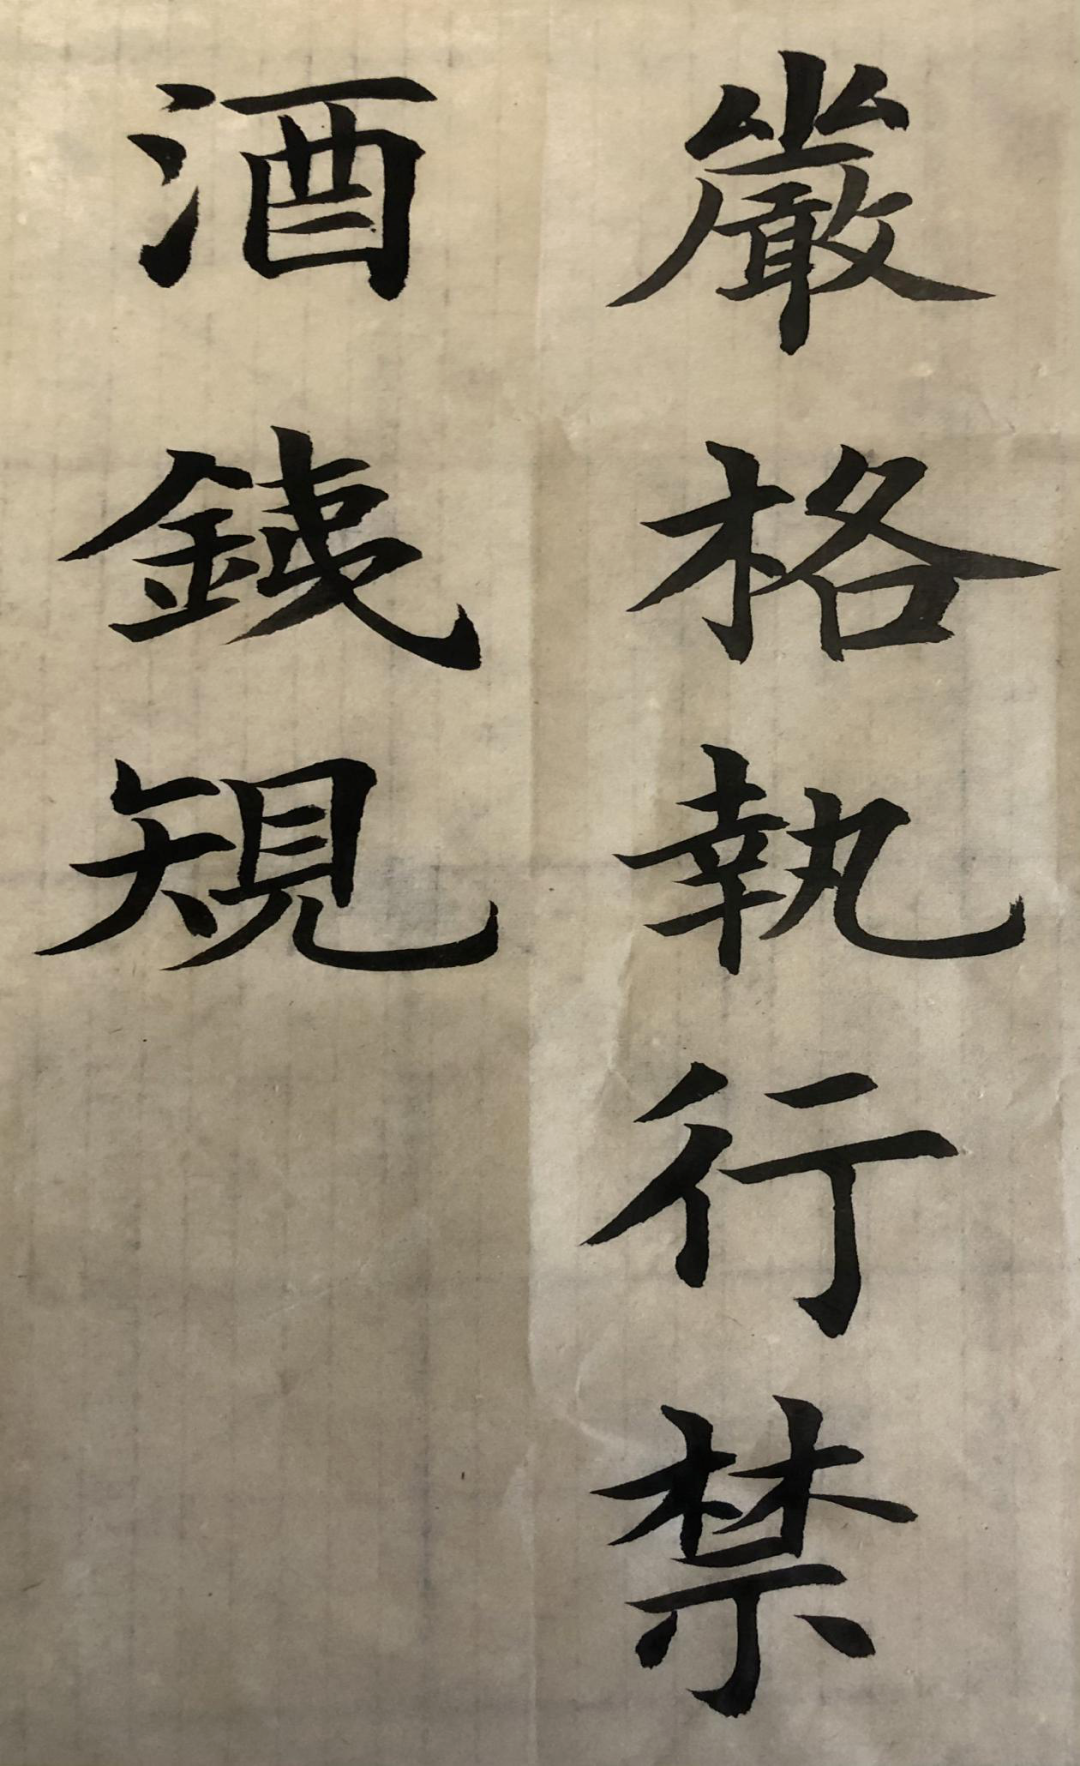 嚴格執行禁
酒銕規